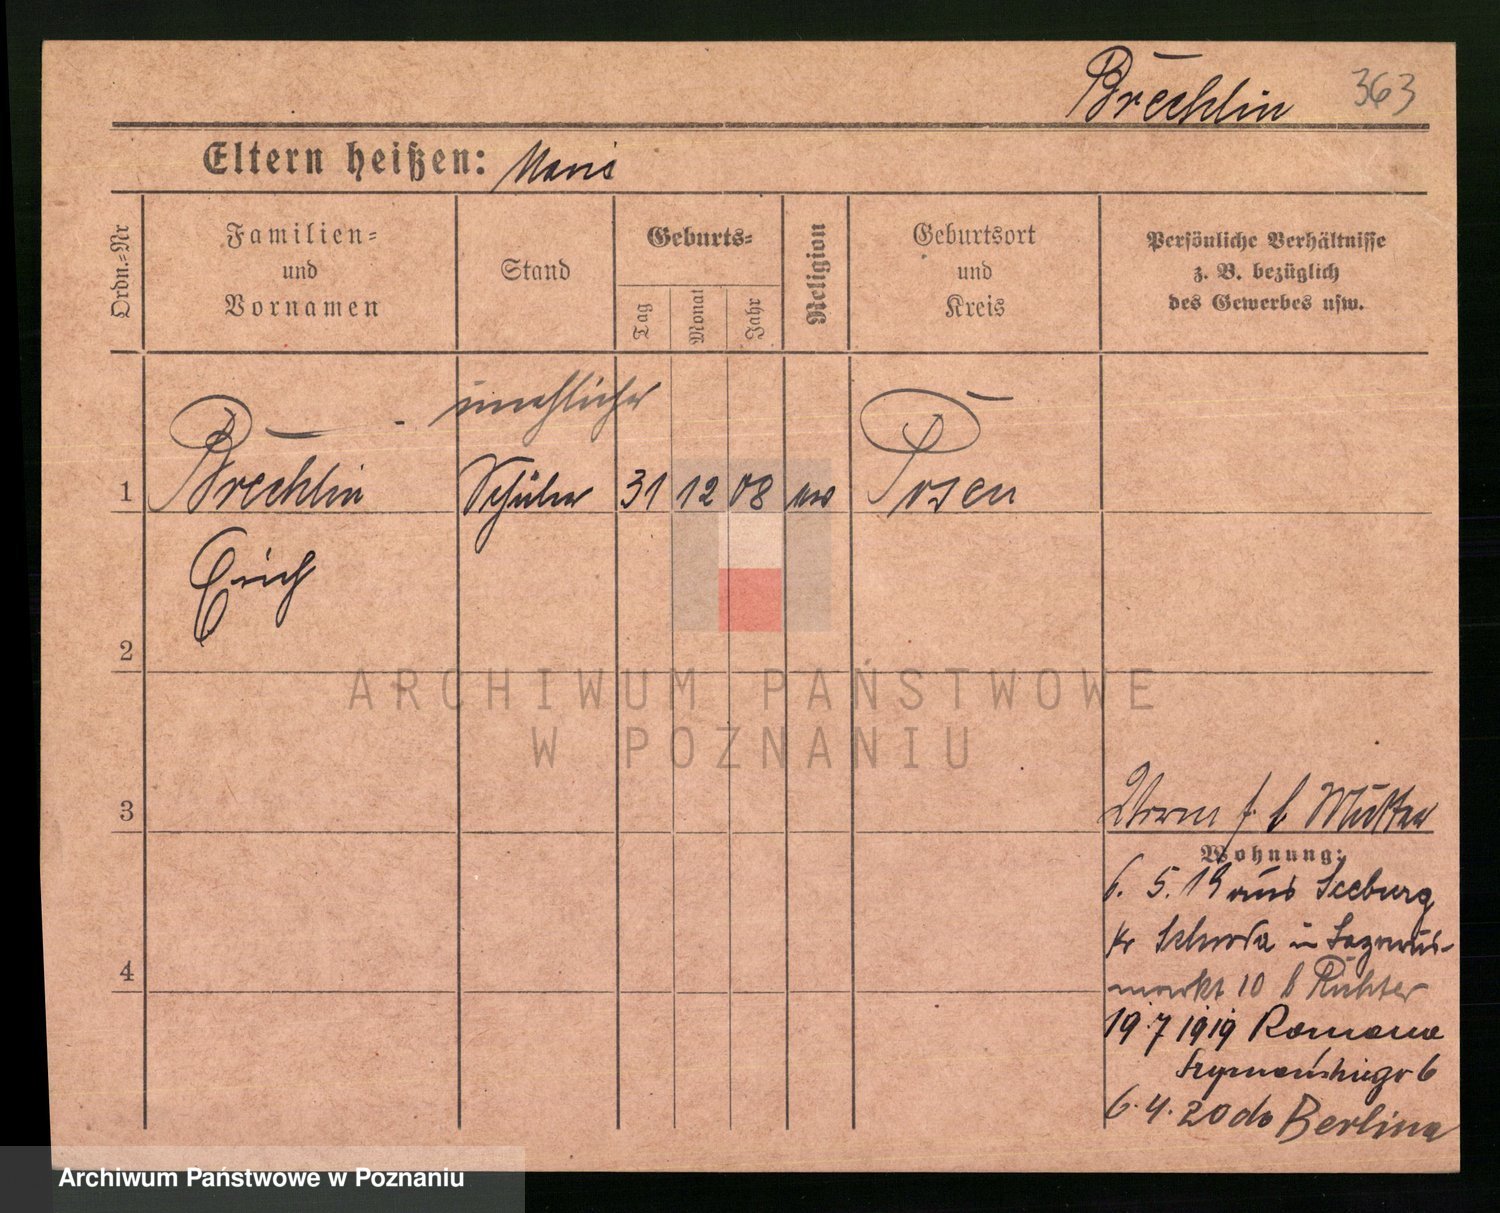 Brechlin 363
Eltern heißen: Marie
Ordn.-Nr
Familien-
und
Vornamen
Stand
Geburts-
Tag
Monat
Jahr
Religion
Geburtsort
und
Kreis
Persönliche Verhältnisse
z. B. bezüglich
des Gewerbes usw.
unehlicher
1 Brechlin Schüler 31 12 08 ev Posen
Erich
2
ARCHIWUM PAŃSTWOWE
W POZNANIU
3
f. b Mutter
Wohnung:
6. 5. 19 aus Seeburg
Kr Schroda in
markt 10 b Richter
4
19.7 1919 Romana
Szymańskiego 6
6.4.20 do Berlina
Archiwum Państwowe w Poznaniu